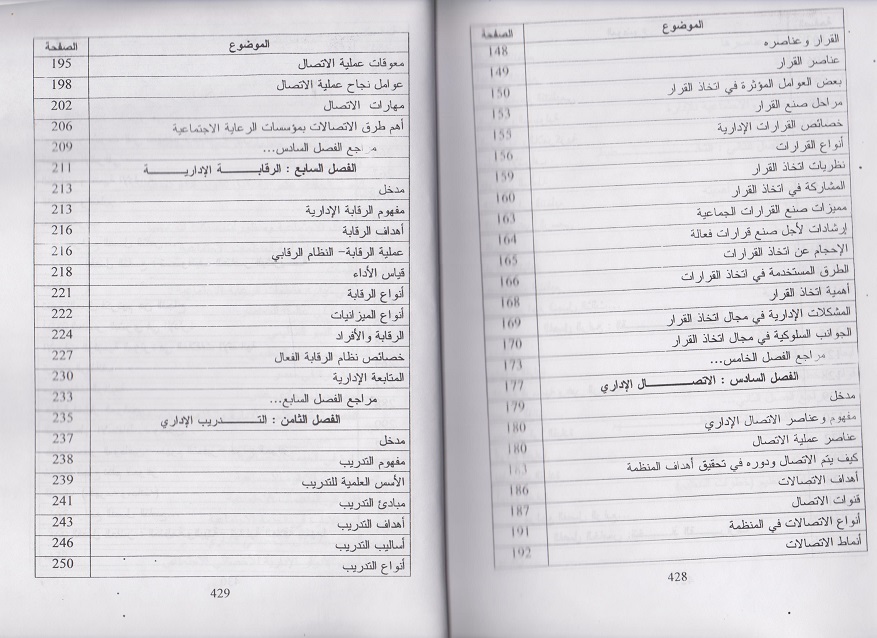 الموضوع الصفحة
القرار وعناصره 148
عناصر القرار 149
بعض العوامل المؤثرة في اتخاذ القرار 150
مراحل صنع القرار 153
خصائص القرارات الإدارية 155
أنواع القرارات 156
نظريات اتخاذ القرار 159
المشاركة في اتخاذ القرار 160
مميزات صنع القرارات الجماعية 163
إرشادات لأجل صنع قرارات فعالة 164
الإحجام عن اتخاذ القرارات 165
الطرق المستخدمة في اتخاذ القرارات 166
أهمية اتخاذ القرار 168
المشكلات الإدارية في مجال اتخاذ القرار 169
الجوانب السلوكية في مجال اتخاذ القرار 170
مراجع الفصل الخامس... 173
الفصل السادس : الاتصـــــــال الإداري 177
مدخل 179
مفهوم وعناصر الاتصال الإداري 180
عناصر عملية الاتصال 180
كيف يتم الاتصال ودوره في تحقيق أهداف المنظمة 183
أهداف الاتصالات 186
قنوات الاتصال 187
أنواع الاتصالات في المنظمة 191
أنماط الاتصالات 192
428
الموضوع الصفحة
معوقات عملية الاتصال 195
عوامل نجاح عملية الاتصال 198
مهارات الاتصال 202
أهم طرق الاتصالات بمؤسسات الرعاية الاجتماعية 206
مراجع الفصل السادس... 209
الفصل السابع : الرقابـــــــة الإداريـــــــة 211
مدخل 213
مفهوم الرقابة الإدارية 213
أهداف الرقابة 216
عملية الرقابة– النظام الرقابي 216
قياس الأداء 218
أنواع الرقابة 221
أنواع الميزانيات 222
الرقابة والأفراد 224
خصائص نظام الرقابة الفعال 227
المتابعة الإدارية 230
مراجع الفصل السابع... 233
الفصل الثامن : التـــــــدريب الإداري 235
مدخل 237
مفهوم التدريب 238
الأسس العلمية للتدريب 239
مبادئ التدريب 241
أهداف التدريب 243
أساليب التدريب 246
أنواع التدريب 250
429